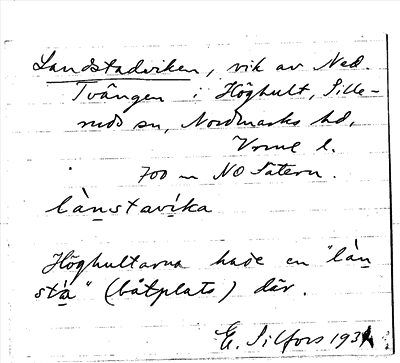 Landstadviken, vik av Ned.
Tvången i Höghult, Sille-
ruds sn, Nordmarks hd,
Vrml l.
700 m NO Tätern.
lànstavíka
Höghultarna hade en "làn
stà" (båtplats) där.
E. Silfors 1931